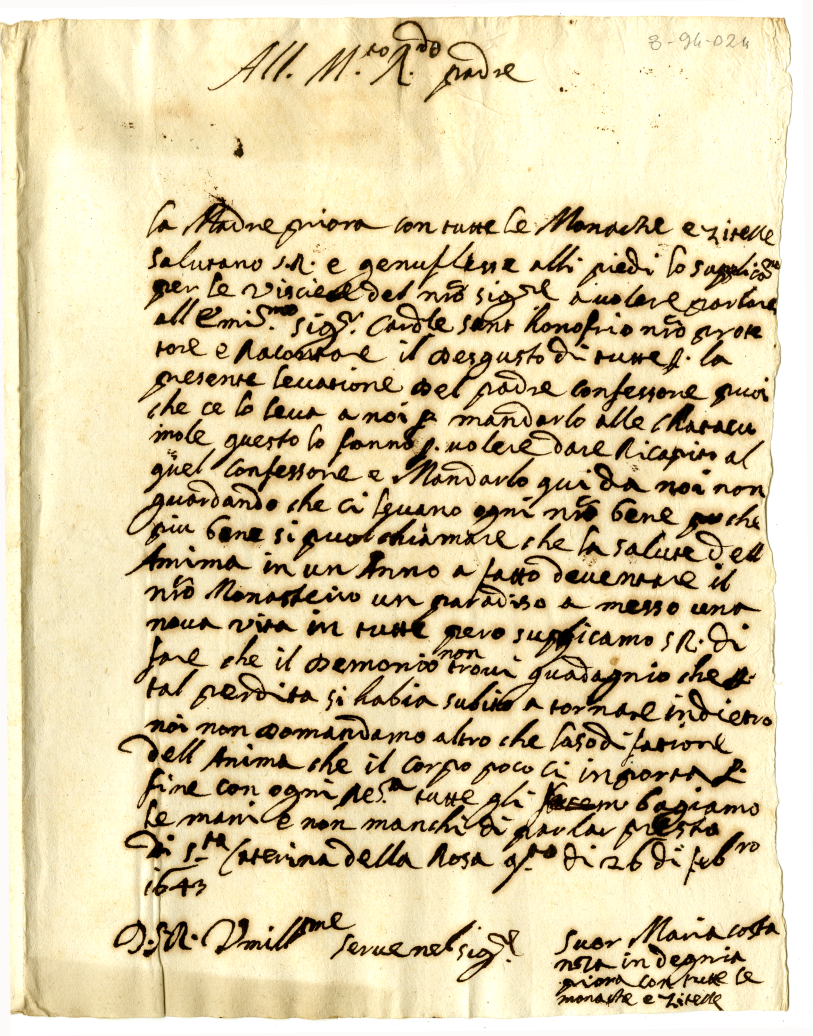 8-94-024
All. M.to R.do padre
la Madre priora con tutte le Monache e zitelle
salutano S.R. e genuflesse alli piedi lo supplicano
per le visciere del nro sig.re a volere parlare
all Emi.mo sig.r Cardle sant honofrio nro prote
tore e Racontare il desgusto di tutte p. la
presente levatione del padre confessore puoi
che ce lo leva a noi p mandarlo alle
questo lo fanno p. volere dare Ricapito al
quel confessore e Mandarlo qui da noi non
guardando che ci levano ogni nro bene po che
piu bene si puol chiamare che la salute dell
Anima in un Anno a fatto deventare il
nro Monasteiro un paradiso a messo una
nova vita in tutte pero suplicamo S.R. di
fare che il demonio non trovi guadagnio che p.
tal perdita si habia subito a tornare indietro
noi non domandamo altro che la sodisfatione
dell Anima che il corpo poco ci inporta p.
fine con ogni Re.za tutte gli bagiamo
le mani e non manchi di parlar presto
Di S.ta Caterina della Rosa q.to di 26 di feb.ro
1643
D.S.R. Umill.me serve nel sig.re
Suor Maria costa
nza indegnia
priora con tutte le
monache e zitelle